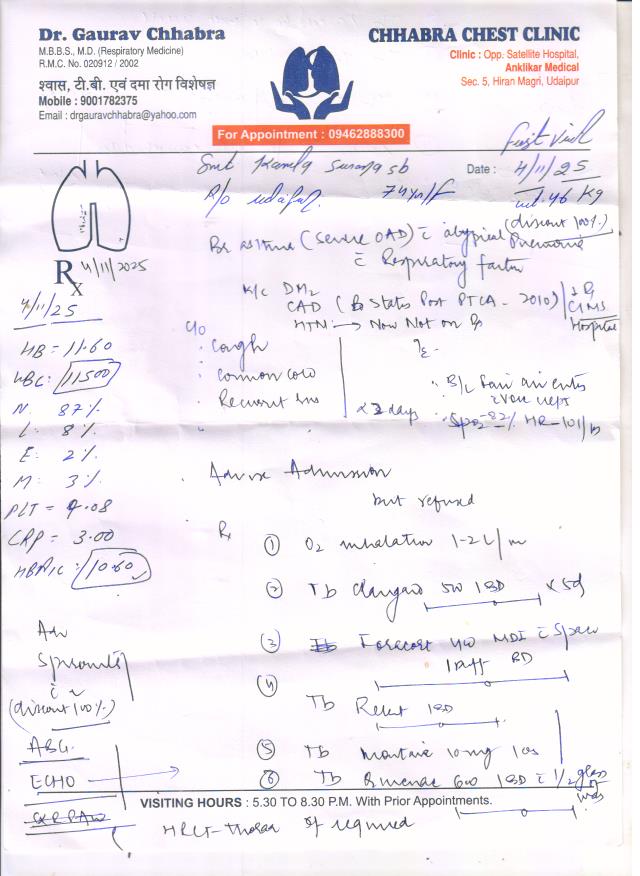 Dr. Gaurav Chhabra
M.B.B.S., M.D. (Respiratory Medicine)
R.M.C. No. 020912 / 2002
श्वास, टी.बी. एवं दमा रोग विशेषज्ञ
Mobile : 9001782375
Email : drgauravchhabra@yahoo.com
CHHABRA CHEST CLINIC
Clinic : Opp. Satellite Hospital,
Anklikar Medical
Sec. 5, Hiran Magri, Udaipur
For Appointment : 09462888300
First Visit
Smt Kamla Surana sb
Date : 4/11/25
R/o Udaipur 74 yr/F wt. 46 Kg
(discount 100%)
Rx 4/11/2025
Br asthma (severe OAD) c̄ atypical Pneumonia
c̄ Respiratory failure
K/c DM2
CAD (Status Post PTCA - 2010)
CIMS Hospital
HTN → Now Not on Rx
4/11/25
HB = 11.60
WBC: 11500
N. 87%
L: 8%
E: 2%
M: 3%
PLT = 4.08
CRP = 3.00
HBA1C: 10.60
C/o
Cough
Common cold
Recurrent
x 3 days
O/E -
B/L Fair air entry
SpO2 - 82% HR - 101/m
Advise Admission
but refused
Rx
① O2 inhalation 1-2 L/m
② Tb 500 1BD x 5d
③ Foracort 400 MDI c̄ Spacer
1 Puff BD
④ Tb 1BD
⑤ Tb 10mg
⑥ Tb 600 1BD c̄ 1/2 glass of
Adv
Spirometry
(discount 100%)
ABG
ECHO
VISITING HOURS : 5.30 TO 8.30 P.M. With Prior Appointments.
HRCT - Thorax if required